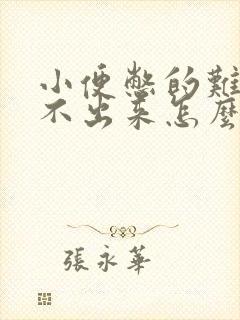 小便憋的難
不出來怎麼
張永華